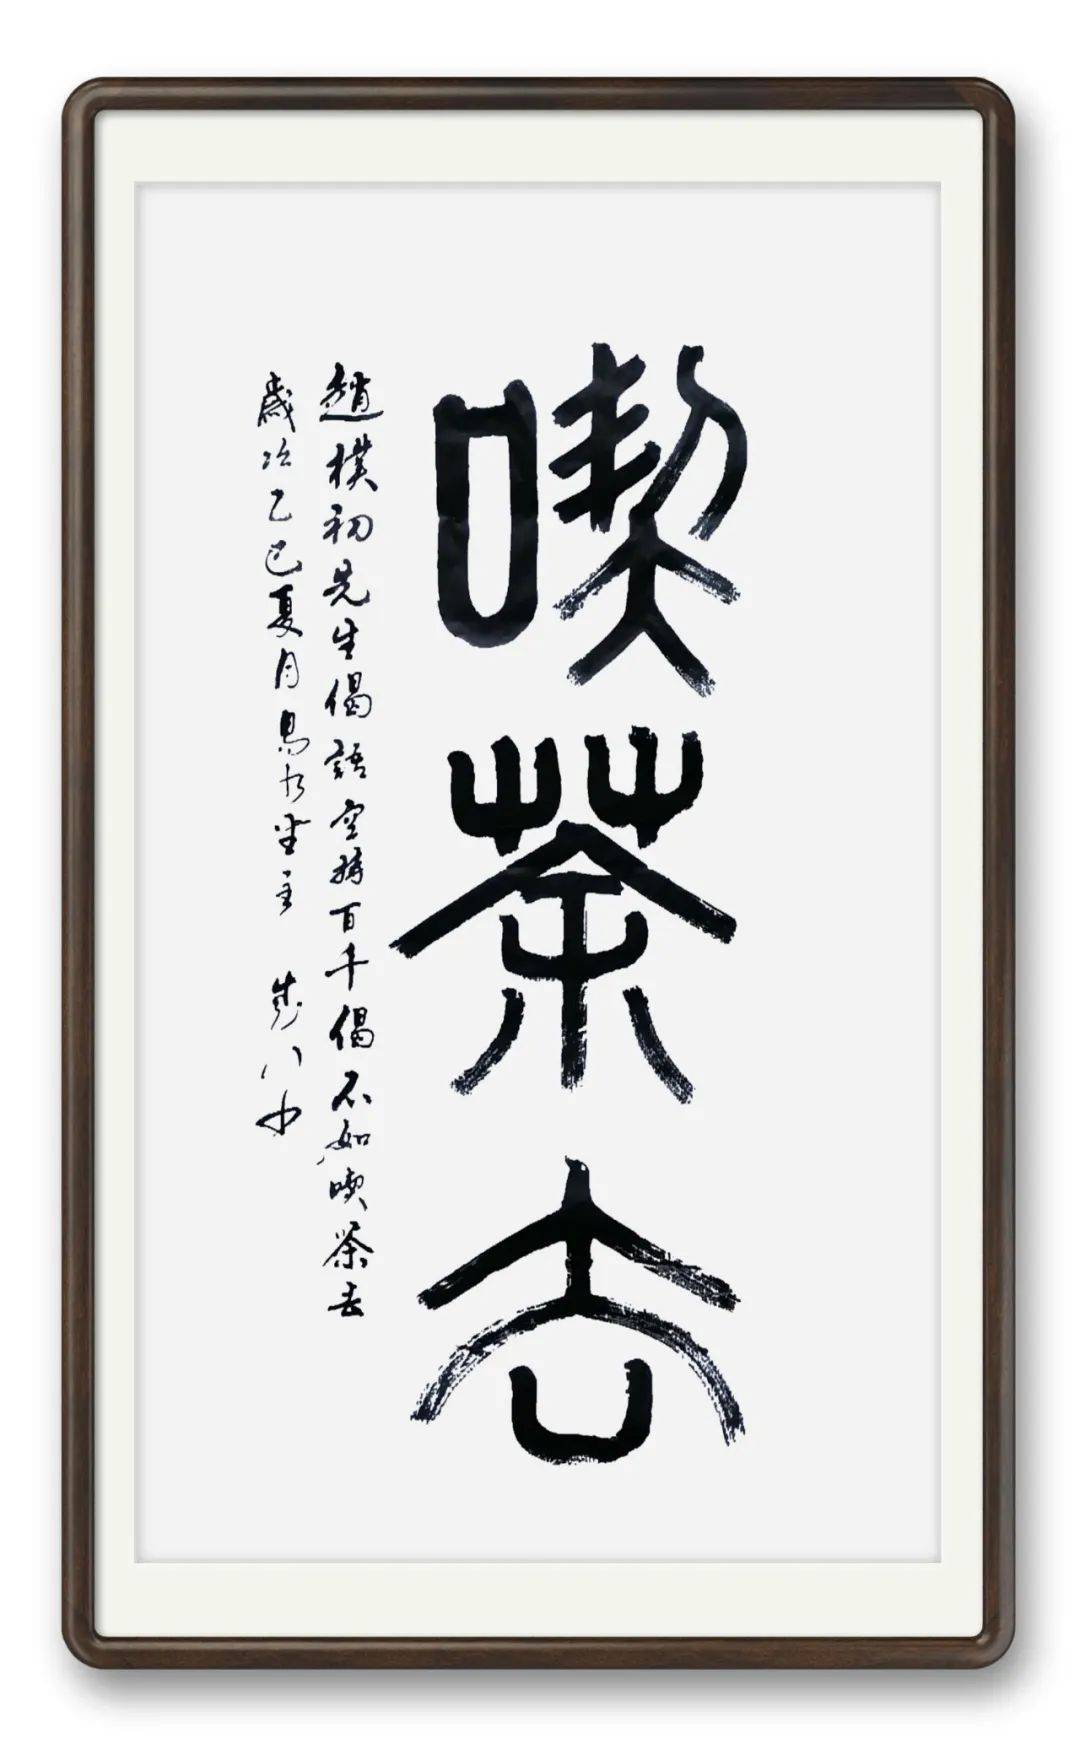 喫茶去
趙樸初先生偈語空持百千偈不如喫茶去
歲次乙巳夏月